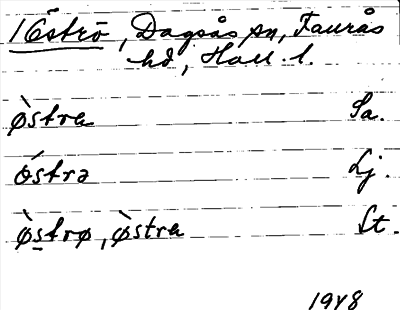 1 Öströ, Dagsås sn, Faurås
hd, Hall. l.
ø̀stra Sa.
ǿstrə Lj.
ø̀strø, ø̀stra St.
1948